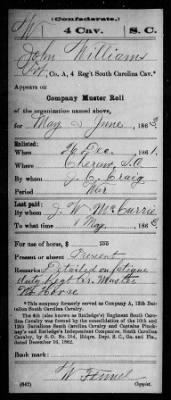 W
(Confederate.)
4 Cav.
S. C.
John Williams
Pvt, Co. A, 4 Reg't South Carolina Cav.*
Appears on
Company Muster Roll
of the organization named above,
for May & June, 1863.
Enlisted:
When 26 Dec, 1861.
Where Cheraw, S.C.
By whom J. C. Craig
Period War
Last paid:
By whom J. W. McCurrie
To what time 1 May, 1863.
For use of horse, $
Present or absent Present
Remarks: Detailed on fatigue
duty Regt Qr. Master
No Horse
*This company formerly served as Company A, 12th Battalion South Carolina Cavalry.
The 4th (also known as Rutledge's) Regiment South Carolina Cavalry was formed by the consolidation of the 10th and 12th Battalions South Carolina Cavalry and Captains Pinckney's and Rutledge's Independent Companies, South Carolina Cavalry, by S. O. No.
Hdqrs. Dept. S. C., Ga. and Fla., dated December 16, 1862.
Book mark:
(642)
Copyist.